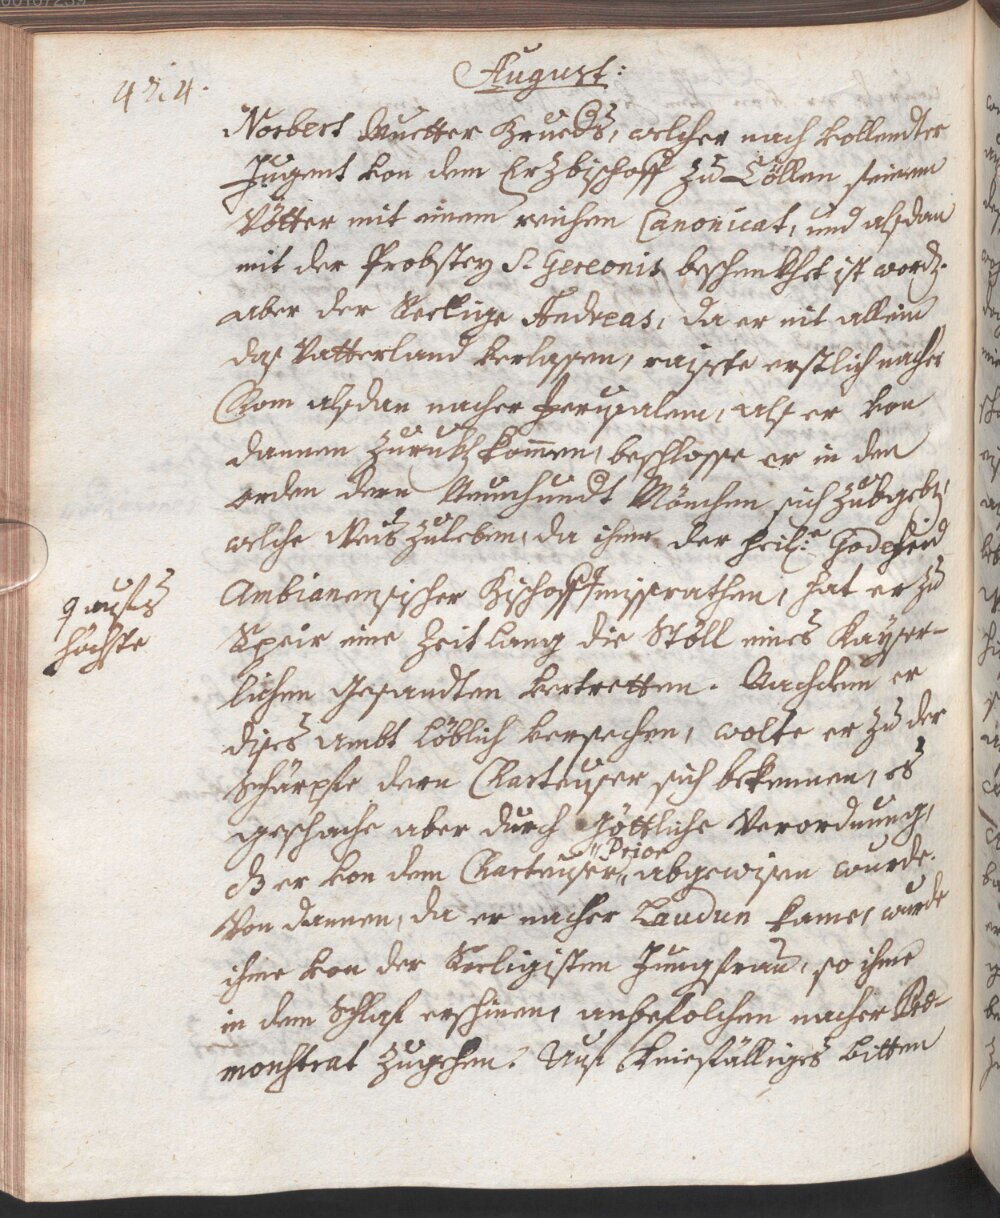 424.
August:
Norbert Muetter Brueds, welcher nach vollendter
Jugent von dem Erzbischoff zu Cöllen seinem
Vötter mit einem reichen Canonicat, und alsdan
mit der Probstey S. Gereonis beschenkhet ist word.
aber der Seelige Andreas, da er nit allein
das Vatterland verlassen, raisete erstlich nacher
Rom alsdan nacher Jerusalem, als er von
dannen zurukh kommen, beschlosse er in den
orden dern Mönchen sich zubgebn,
welche Weis zuleben, da ihme der heil: Godefrid
Ambianensischer Bischoff missrathen, hat er zu
aufs
höchste
Speir eine Zeit lang die Stöll eines Kayser-
lichen Gesandten vertretten. Nachdem er
dises ambt löblich versechen, wolte er zu der
Schärpfe dern Carteuser sich bekennen, es
geschache aber durch göttliche Verordnung,
Prior
dß er von dem Carteuser, abgewisen wurde.
Von dannen, da er nacher Laudun kame, wurde
ihme von der Seeligisten Jungfrau, so ihme
in dem Schlaf erschinen, anbefolchen nacher Præ-
monstrat zugehen. Auf kniefälliges bitten